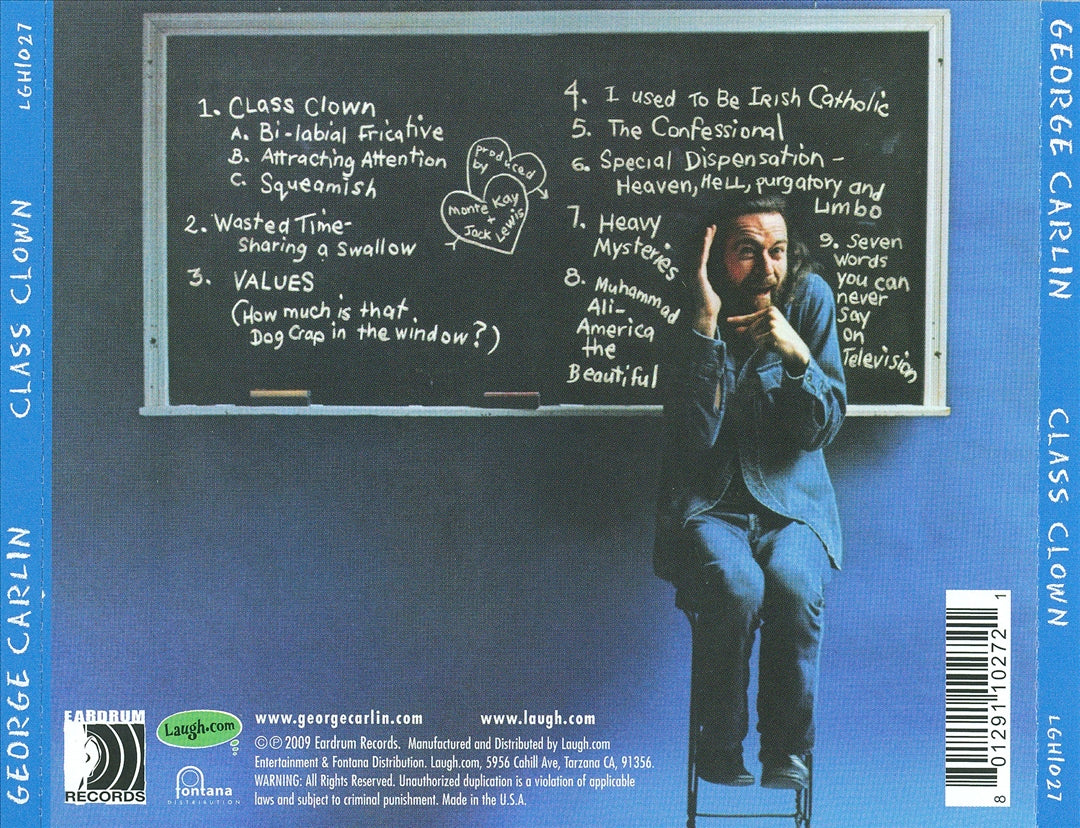 GEORGE CARLIN
CLASS CLOWN
LGH1027
1. CLASS CLOWN
A. Bi-labial Fricative
B. Attracting Attention
C. Squeamish
2. Wasted Time-
Sharing a Swallow
3. VALUES
(How much is that
Dog Crap in the window?)
produced
by
Monte Kay
+
Jack Lewis
4. I used To Be Irish Catholic
5. The Confessional
6. Special Dispensation -
Heaven, HELL, purgatory and
Limbo
7. Heavy
Mysteries
8. Muhammad
Ali-
America
the
Beautiful
9. Seven
words
you can
never
say
on
Television
EARDRUM
RECORDS
Laugh.com
fontana
DISTRIBUTION
www.georgecarlin.com www.laugh.com
©℗ 2009 Eardrum Records. Manufactured and Distributed by Laugh.com
Entertainment & Fontana Distribution. Laugh.com, 5956 Cahill Ave, Tarzana CA, 91356.
WARNING: All Rights Reserved. Unauthorized duplication is a violation of applicable
laws and subject to criminal punishment. Made in the U.S.A.
8 01291 10272 1
GEORGE CARLIN
CLASS CLOWN
LGH1027